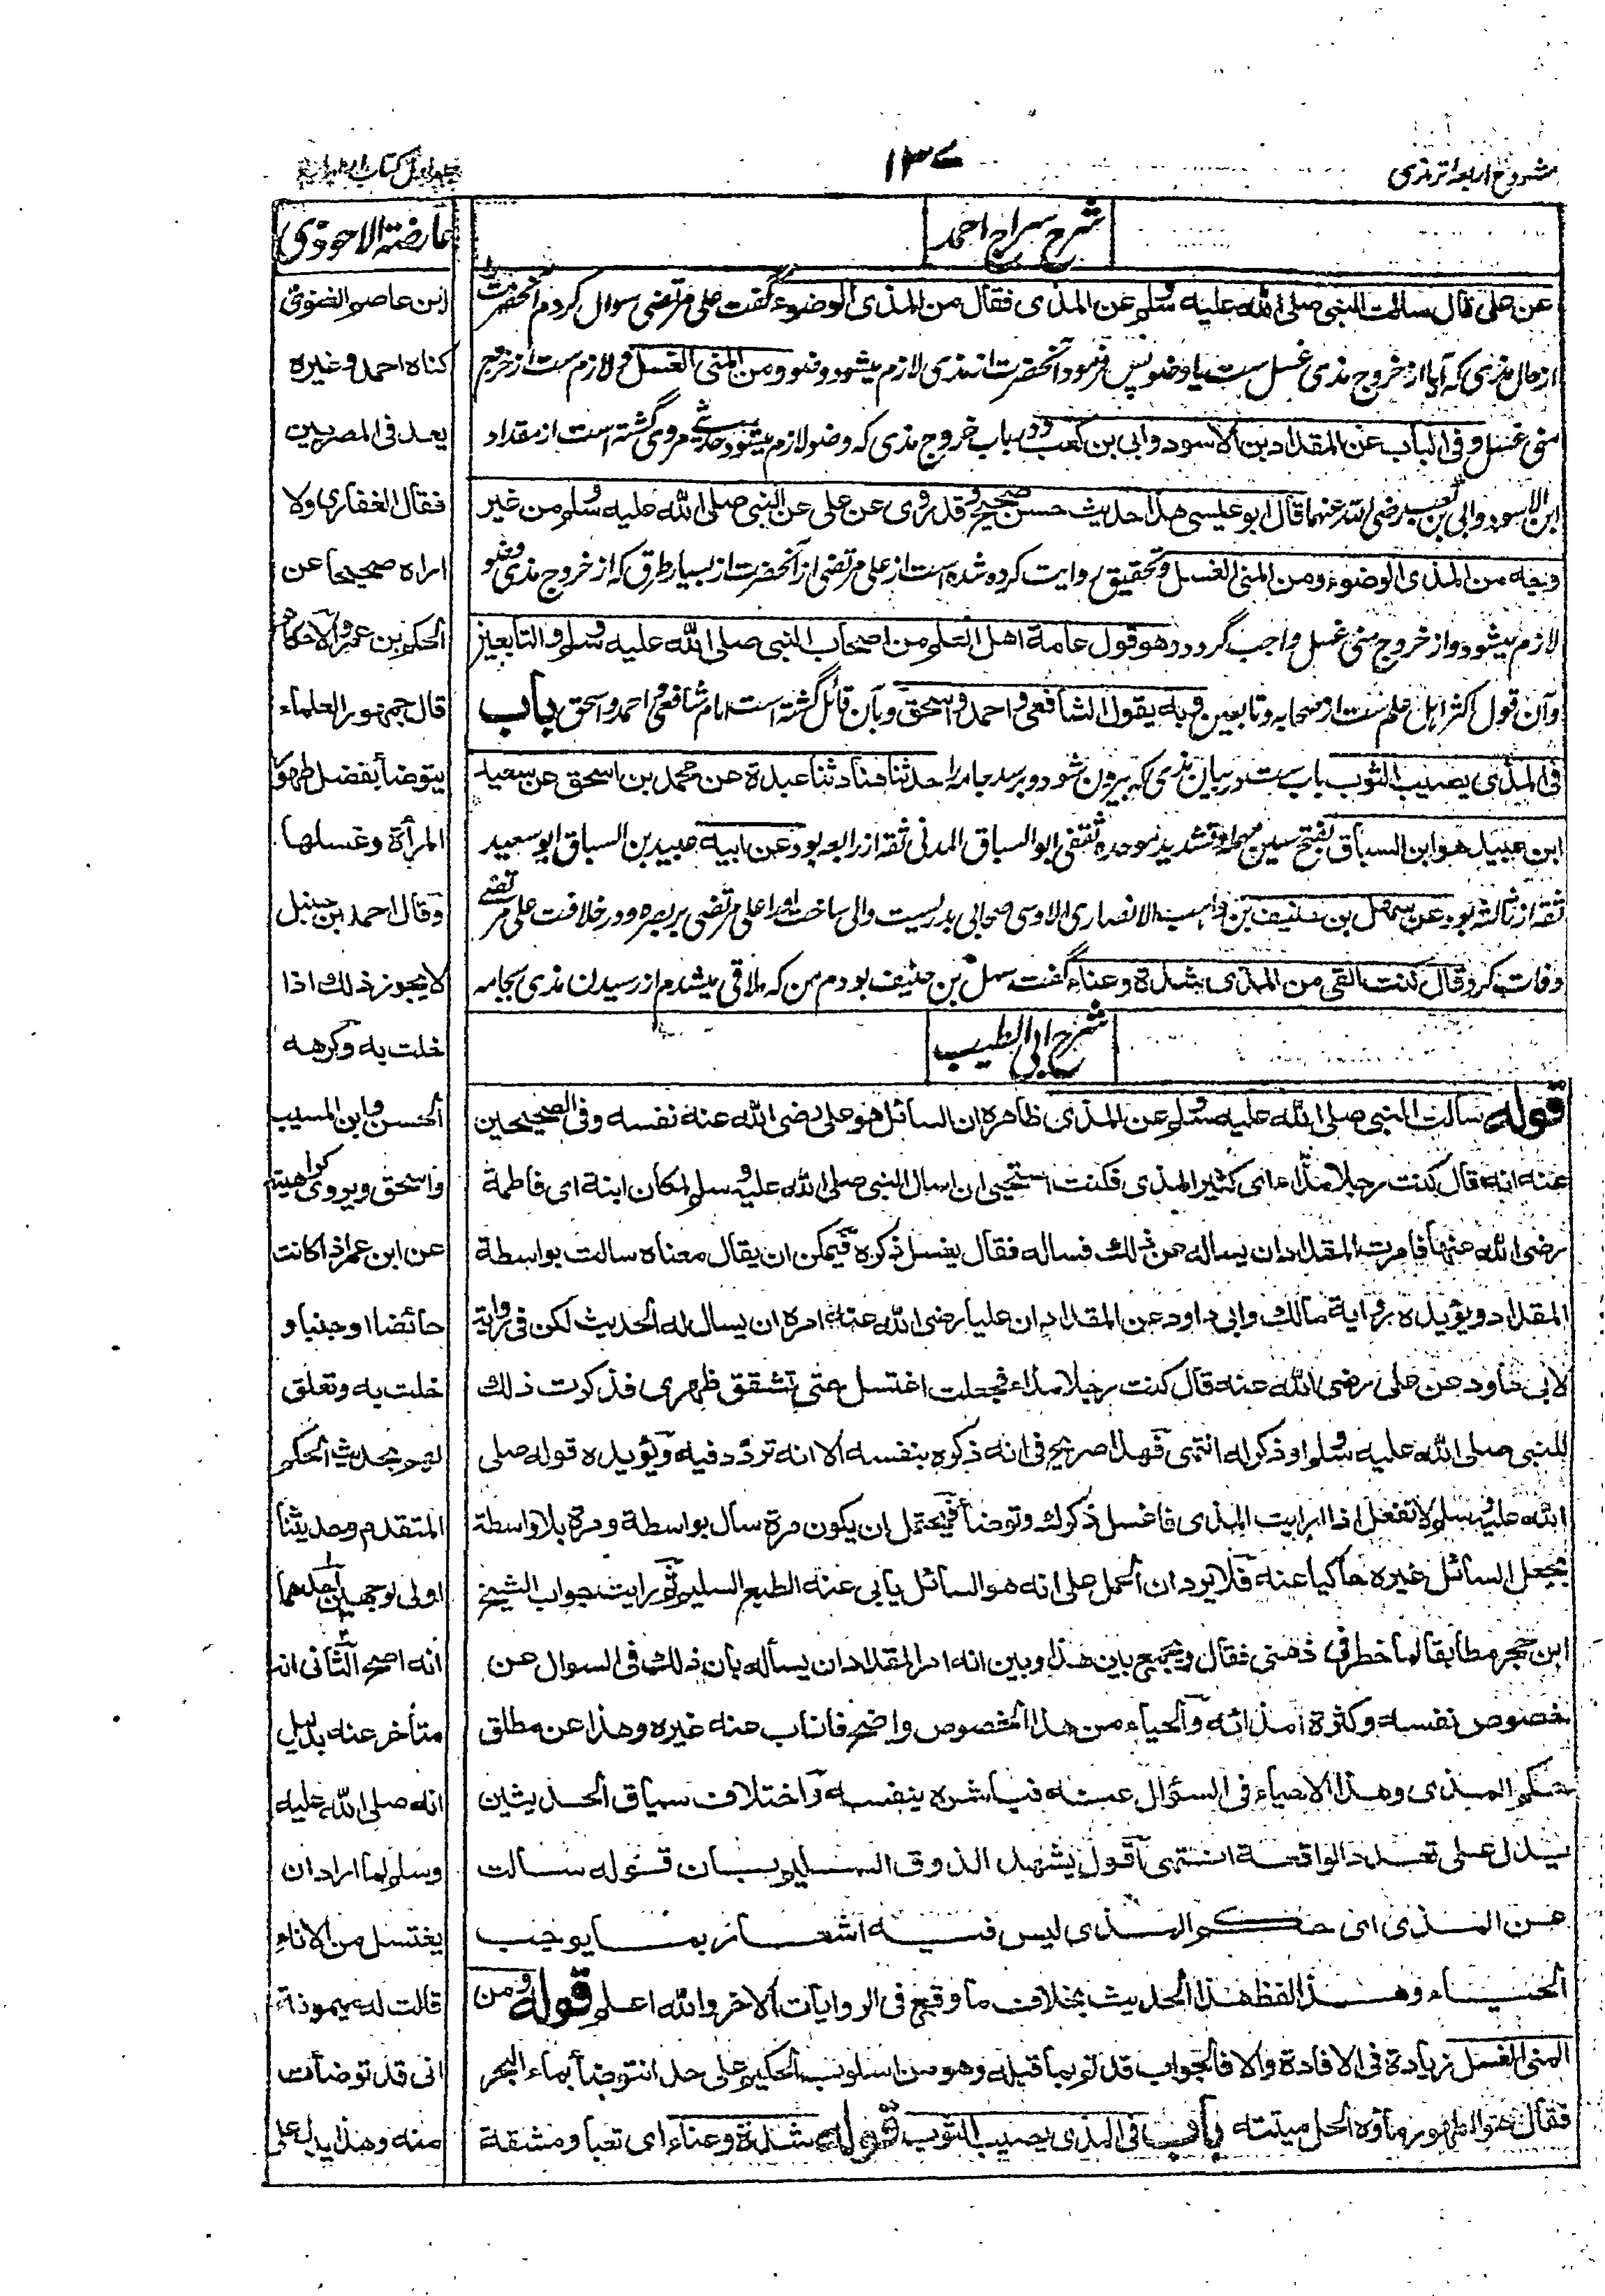 شروح اربعہ ترمذی
۱۳۷
جلد اول کتاب الطہارۃ
شرح سراج احمد
عن علی قال سالت النبی صلی اللہ علیہ وسلم عن المذی فقال من المذی الوضوء گفت علی مرتضی سوال کردم آنحضرت را
از حال مذی کہ آیا از خروج مذی غسل ست یا وضو پس فرمود آنحضرت از مذی لازم میشود وضو ومن المنی الغسل ولازم ست از خروج
منی غسل وفی الباب عن المقداد بن الاسود وابی بن کعب ودر باب خروج مذی کہ وضو لازم میشود حدیثے مروی گشتہ است از مقداد
ابن الاسود وابی بن کعب رضی اللہ عنہما قال ابو عیسی ہذا حدیث حسن صحیح وقد روی عن علی عن النبی صلی اللہ علیہ وسلم من غیر
وجہ من المذی الوضوء ومن المنی الغسل وتحقیق روایت کردہ شدہ است از علی مرتضی از آنحضرت از بسیار طرق کہ از خروج مذی وضو
لازم میشود واز خروج منی غسل واجب گردد وہو قول عامۃ اہل العلم من اصحاب النبی صلی اللہ علیہ وسلم والتابعین
وآن قول اکثر اہل علم ست از صحابہ وتابعین وبہ یقول الشافعی واحمد واسحق وبآن قائل گشتہ است امام شافعی واحمد واسحق باب
فی المذی یصیب الثوب باب ست در بیان مذی کہ بیرون شود وبرسد جامہ را حدثنا ہناد ثنا عبدۃ عن محمد بن اسحق عن سعید
ابن عبید ہو ابن السباق بفتح سین مہملہ وتشدید موحدہ ثقفی ابو السباق المدنی ثقہ از رابعہ بود عن ابیہ عبید بن السباق ابو سعید
ثقہ از ثالثہ بود عن سہل بن حنیف بن واہب الانصاری الاوسی صحابی بدریست والی ساخت اورا علی مرتضی بر بصرہ ودر خلافت علی مرتضے
وفات کرد قال کنت القی من المذی شدۃ وعناء گفت سہل بن حنیف بودم من کہ ملاقی میشدم از رسیدن مذی بجامہ
شرح ابی الطیب
قولہ سالت النبی صلی اللہ علیہ وسلم عن المذی ظاہرہ ان السائل ہو علی رضی اللہ عنہ نفسہ وفی الصحیحین
عنہ انہ قال کنت رجلا مذاء ای کثیر المذی فکنت استحیی ان اسال النبی صلی اللہ علیہ وسلم لمکان ابنۃ ای فاطمۃ
رضی اللہ عنہا فامرت المقداد ان یسالہ عن ذلک فسالہ فقال یغسل ذکرہ فیمکن ان یقال معناہ سالت بواسطۃ
المقداد ویؤیدہ روایۃ مالک وابی داود عن المقداد ان علیا رضی اللہ عنہ امرہ ان یسال لہ الحدیث لکن فی روایۃ
لابی داود عن علی رضی اللہ عنہ قال کنت رجلا مذاء فجعلت اغتسل حتی تشقق ظہری فذکرت ذلک
للنبی صلی اللہ علیہ وسلم او ذکر لہ انتہی فہذا صریح فی انہ ذکرہ بنفسہ الا انہ تردد فیہ ویؤیدہ قولہ صلی
اللہ علیہ وسلم لا تفعل اذا رایت المذی فاغسل ذکرک وتوضأ فیحتمل ان یکون مرۃ سأل بواسطۃ ومرۃ بلا واسطۃ
بجعل السائل غیرہ حاکیا عنہ فلا یرد ان الحمل علی انہ ہو السائل یابی عنہ الطبع السلیم ثم رایت جواب الشیخ
ابن حجر مطابقا لما خطر فی ذہنی فقال ویجمع بین ہذا وبین انہ امر المقداد ان یسألہ بان ذلک فی السوال عن
خصوص نفسہ وکثرۃ امذائہ والحیاء من ہذا الخصوص واضح فاناب عنہ غیرہ وہذا عن مطلق
حکم المذی وہذا لا حیاء فی السؤال عنہ فباشرہ بنفسہ واختلاف سیاق الحدیثین
یدل علی تعدد الواقعۃ انتہی اقول یشہد الذوق السلیم بان قولہ سالت
عن المذی ای حکم المذی لیس فیہ اشعار بما یوجب
الحیاء وہذا لفظ ہذا الحدیث بخلاف ما وقع فی الروایات الاخر واللہ اعلم قولہ ومن
المنی الغسل زیادۃ فی الافادۃ والا فالجواب قد تم بما قبلہ وہو من اسلوب الحکیم علی حد انتوضأ بماء البحر
فقال ہو الطہور ماؤہ الحل میتتہ باب فی المذی یصیب الثوب قولہ شدۃ وعناء ای تعبا ومشقۃ
عارضۃ الاحوذی
ابن عاصم الغنوی
کناہ احمد وغیرہ
یعد فی المصریین
فقال الغفاری ولا
اراہ صحیحا عن
الحکم بن عمرو الاحکام
قال جمہور العلماء
یتوضأ بفضل طہور
المرأۃ وغسلہا
وقال احمد بن حنبل
لا یجوز ذلک اذا
خلت بہ وکرہہ
الحسن وابن المسیب
واسحق ویروی کراہیتہ
عن ابن عمر اذا کانت
حائضا او جنبا و
خلت بہ وتعلق
لہم بحدیث الحکم
المتقدم وحدیثنا
اولی لوجہین احدہما
انہ اصح الثانی انہ
متأخر عنہ بدلیل
انہ صلی اللہ علیہ
وسلم لما اراد ان
یغتسل من الاناء
قالت لہ میمونۃ
انی قد توضأت
منہ وہذا یدل علی